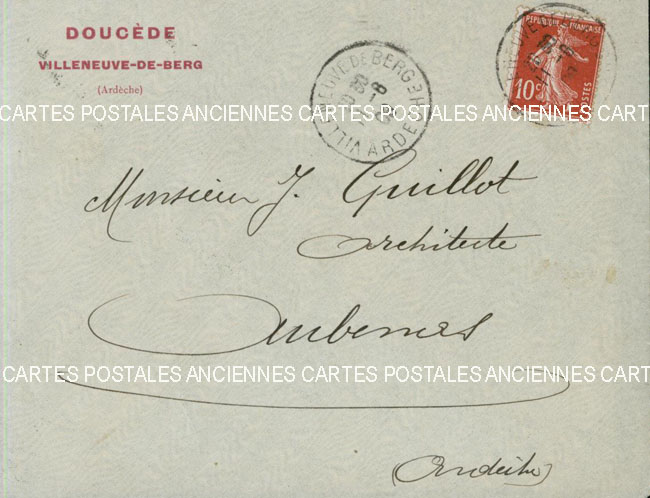 DOUCÈDE
VILLENEUVE-DE-BERG
(Ardèche)
VILLENEUVE DE BERG
ARDECHE
REPUBLIQUE FRANÇAISE
10c
POSTES
CARTES POSTALES ANCIENNES CARTES POSTALES ANCIENNES CART
Monsieur J. Guillot
Architecte
Aubenas
CARTES POSTALES ANCIENNES CARTES POSTALES ANCIENNES CART
(Ardèche)